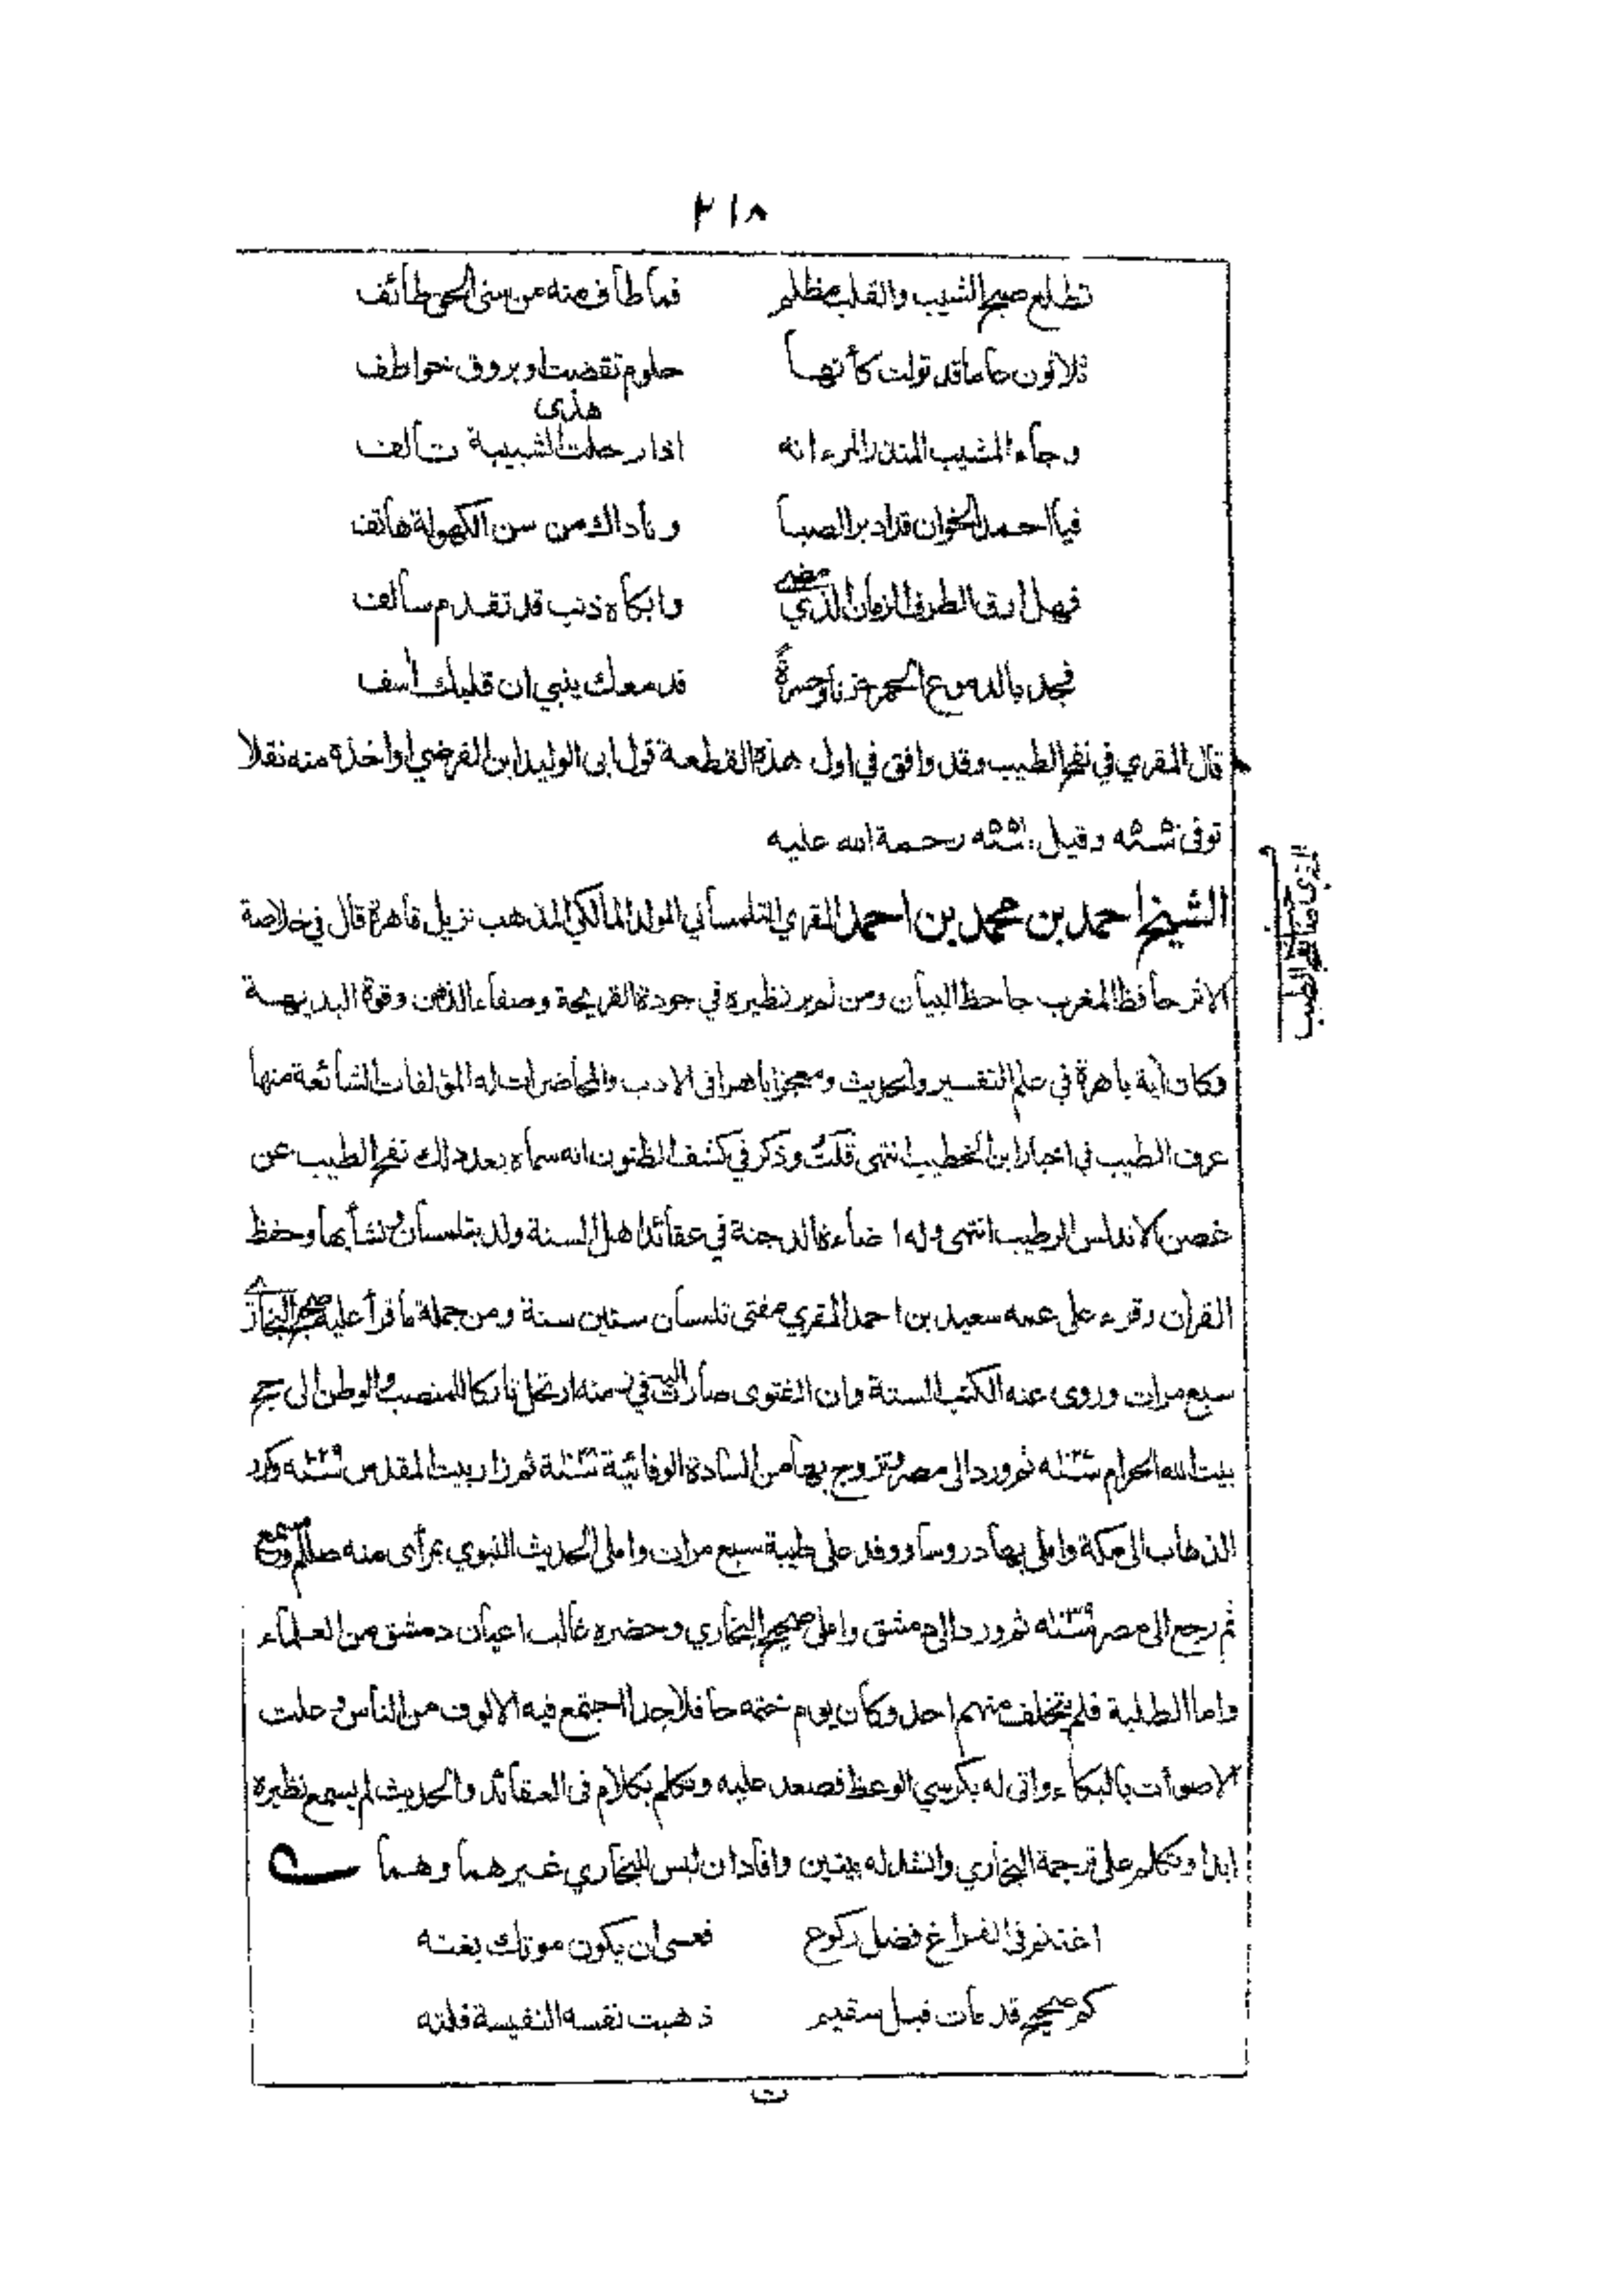 ٢١٨
تطلع صبح الشيب والقلب مظلم فما طاف منه من سنى الحق طائف
ثلاثون عاما قد تولت كأنها حلوم تقضت او بروق خواطف
هذى
وجاء المشيب المنذر المرء انه اذا رحلت الشبيبة تألف
فيا احمد الخوان قد ادبر الصبا وناداك من سن الكهولة هاتف
مضى
فهل ارق الطرف الزمان الذي وابكاه ذنب قد تقدم سالف
فجد بالدموع الحمر حزنا وحسرةً فدمعك ينبي ان قلبك اسف
قال المقري في نفح الطيب وقد وافق في اول هذه القطعة قول ابى الوليد ابن الفرضي او اخذه منه نقلا
توفى وقيل رحمة الله عليه
الشيخ احمد بن محمد بن احمد المقري التلمساني المولد المالكي المذهب نزيل قاهرة قال في خلاصة
الاثر حافظ المغرب جاحظ البيان ومن لم ير نظيره في جودة القريحة وصفاء الذهن وقوة البديهة
وكان اية باهرة في علم التفسير والحديث ومعجزا باهرا فى الادب والمحاضرات له المؤلفات الشائعة منها
عرف الطيب في اخبار ابن الخطيب انتهى قلتُ وذكر في كشف الظنون انه سماه بعد ذلك نفح الطيب عن
غصن الاندلس الرطيب انتهى وله اضاءة الدجنة في عقائد اهل السنة ولد بتلمسان ونشأ بها وحفظ
القران وقرء على عمه سعيد بن احمد المقري مفتى تلمسان ستين سنة ومن جملة ما قرأ عليه صحيح البخاري
سبع مرات وروى عنه الكتب الستة وان الفتوى صارت اليه في زمنه ارتحل تاركا للمنصب والوطن الى حج
بيت الله الحرام ثم ورد الى مصر وتزوج بها من السادة الوفائية ثم زار بيت المقدس وكرر
الذهاب الى مكة واملى بها دروسا ووفد على طيبة سبع مرات واملى الحديث النبوي بمرأى منه صلعم ومسمع
ثم رجع الى مصر ثم ورد الى دمشق واملى صحيح البخاري وحضره غالب اعيان دمشق من العلماء
واما الطلبة فلم يتخلف منهم احد وكان يوم ختمه حافلا جدا اجتمع فيه الالوف من الناس وعلت
الاصوات بالبكاء واتى له بكرسي الوعظ فصعد عليه وتكلم بكلام فى العقائد والحديث لم يسمع نظيره
ابدا وتكلم على ترجمة البخاري وانشد له بيتين وافاد ان ليس للبخاري غيرهما وهما
اغتنم فى الفراغ فضل ركوع فعسى ان يكون موتك بغته
كم صحيح قد مات قبل سقيم ذهبت نفسه النفيسة فلته
ت